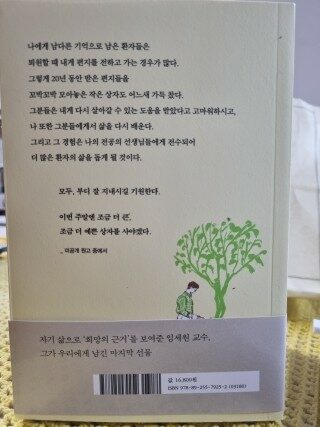 나에게 남다른 기억으로 남은 환자들은
퇴원할 때 내게 편지를 전하고 가는 경우가 많다.
그렇게 20년 동안 받은 편지들을
꼬박꼬박 모아놓은 작은 상자도 어느새 가득 찼다.
그분들은 내게 다시 살아갈 수 있는 도움을 받았다고 고마워하시고,
나 또한 그분들에게서 삶을 다시 배운다.
그리고 그 경험은 나의 전공의 선생님들에게 전수되어
더 많은 환자의 삶을 돕게 될 것이다.
모두, 부디 잘 지내시길 기원한다.
이번 주말엔 조금 더 큰,
조금 더 예쁜 상자를 사야겠다.
_ 미공개 원고 중에서
자기 삶으로 '희망의 근거'를 보여준 임세원 교수,
그가 우리에게 남긴 마지막 선물
값 16,800원
ISBN 978-89-255-7925-2 (03180)